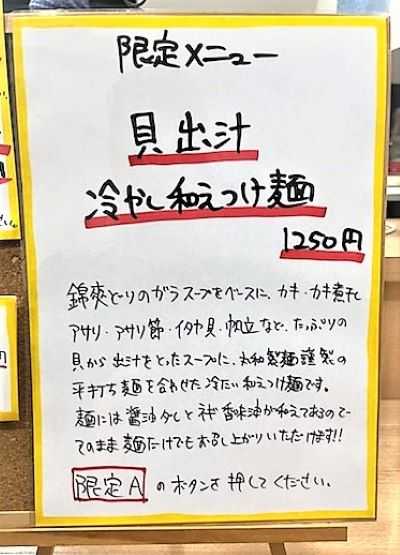 限定メニュー
貝出汁
冷やし和えつけ麺
1250円
錦爽どりのガラスープをベースに、カキ・カキ煮干し
アサリ・アサリ節・イタヤ貝・帆立など、たっぷりの
貝から出汁をとったスープに、丸和製麺謹製の
平打ち麺を合わせた冷たい和えつけ麺です。
麺には醤油タレと 香味油が和えてあるので
そのまま麺だけでもお召し上がりいただけます!!
限定A のボタンを押してください。